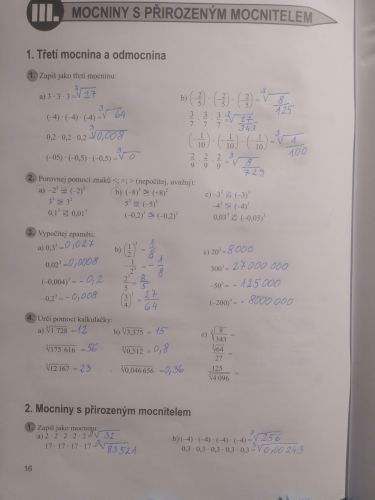 III. MOCNINY S PŘIROZENÝM MOCNITELEM
1. Třetí mocnina a odmocnina
1. Zapiš jako třetí mocninu:
a) 3 · 3 · 3 = ³√27
(–4) · (–4) · (–4) = ³√-64
0,2 · 0,2 · 0,2 = ³√0,008
(–05) · (–0,5) · (–0,5) = ³√0
b) (–2/5) · (–2/5) · (–2/5) = ³√8/125
3/7 · 3/7 · 3/7 = ³√27/343
(–1/10) · (–1/10) · (–1/10) = ³√1/100
2/9 · 2/9 · 2/9 = ³√8/729
2. Porovnej pomocí znaků <; =; > (nepočítej, uvažuj):
a) –2³ (–2)³
5³ 3³
0,1³ 0,01³
b) (–8)³ (+8)³
5³ (–5)³
(–0,2)³ (–0,2)³
c) –3³ (–3)³
–4³ (–4)³
0,03³ (–0,03)³
3. Vypočítej zpaměti:
a) 0,3³ = 0,027
0,02³ = 0,0008
(–0,004)³ = - 0,2
–0,2³ = - 0,008
b) (1/2)³ = 1/8
1/2³ = 1/8
2³/5 = 8/5
(3/4)³ = 27/64
c) 20³ = 8000
300³ = 27 000 000
–50³ = - 125 000
(–200)³ = - 8000 000
4. Urči pomocí kalkulačky:
a) ³√1 728 = 12
³√175 616 = 56
³√12 167 = 23
b) ³√3,375 = 15
³√0,512 = 0,8
³√0,046 656 = 0,36
c) ³√8/343 =
³√64/27 =
125/³√4 096 =
2. Mocniny s přirozeným mocnitelem
1. Zapiš jako mocninu:
a) 2 · 2 · 2 · 2 · 2 = ³√32
17 · 17 · 17 · 17 = ³√83521
b) (–4) · (–4) · (–4) · (–4) = ³√256
0,3 · 0,3 · 0,3 · 0,3 · 0,3 = ³√0,00243
16